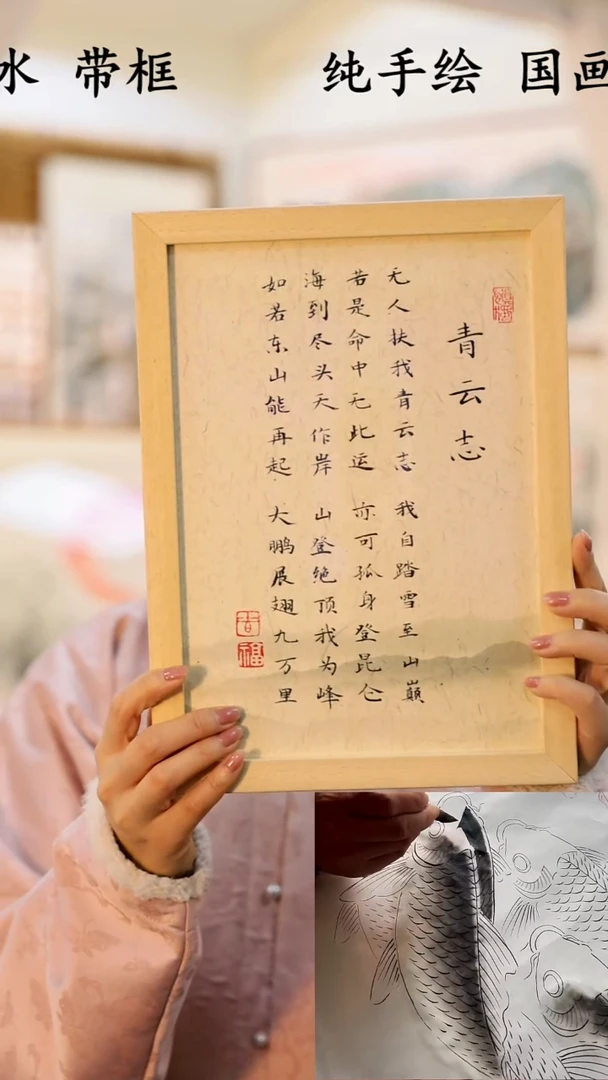 水 带框
纯手绘 国画
青云志
无人扶我青云志 我自踏雪至山巅
若是命中无此运 亦可孤身登昆仑
海到尽头天作岸 山登绝顶我为峰
如若东山能再起 大鹏展翅九万里